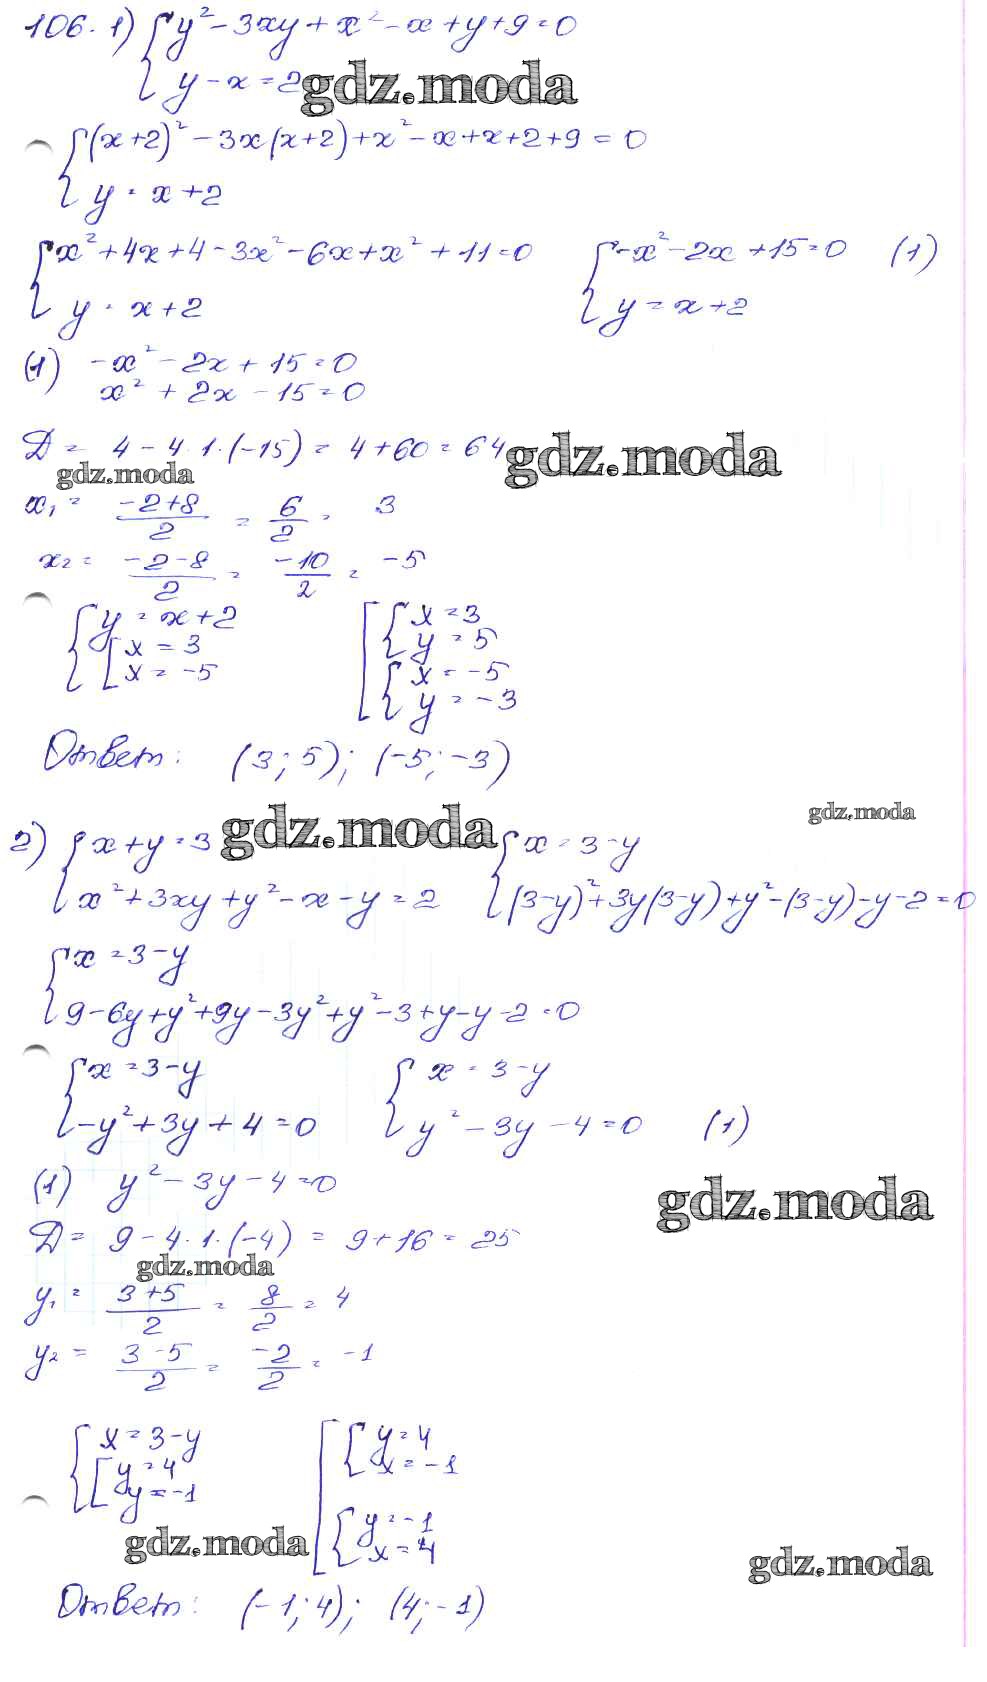 106. 1) { y² - 3xy + x² - x + y + 9 = 0
y - x = 2
gdz.moda
{ (x+2)² - 3x(x+2) + x² - x + x + 2 + 9 = 0
y = x + 2
{ x² + 4x + 4 - 3x² - 6x + x² + 11 = 0 { -x² - 2x + 15 = 0 (1)
y = x + 2 y = x + 2
(1) -x² - 2x + 15 = 0
x² + 2x - 15 = 0
D = 4 - 4·1·(-15) = 4 + 60 = 64
gdz.moda
gdz.moda
x₁ = (-2+8)/2 = 6/2 = 3
x₂ = (-2-8)/2 = -10/2 = -5
{ y = x + 2 [ { x = 3
[ x = 3 y = 5
x = -5 { x = -5
y = -3
Ответ: (3; 5); (-5; -3)
gdz.moda
gdz.moda
2) { x + y = 3 { x = 3 - y
x² + 3xy + y² - x - y = 2 (3-y)² + 3y(3-y) + y² - (3-y) - y - 2 = 0
{ x = 3 - y
9 - 6y + y² + 9y - 3y² + y² - 3 + y - y - 2 = 0
{ x = 3 - y { x = 3 - y
-y² + 3y + 4 = 0 y² - 3y - 4 = 0 (1)
(1) y² - 3y - 4 = 0
gdz.moda
D = 9 - 4·1·(-4) = 9 + 16 = 25
gdz.moda
y₁ = (3+5)/2 = 8/2 = 4
y₂ = (3-5)/2 = -2/2 = -1
{ x = 3 - y [ { y = 4
[ y = 4 x = -1
y = -1 { y = -1
x = 4
gdz.moda
gdz.moda
Ответ: (-1; 4); (4; -1)